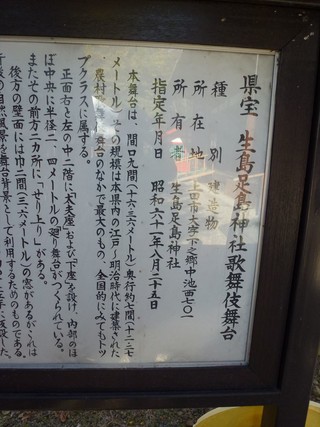 県宝 生島足島神社歌舞伎舞台
種別 建造物
所在地 上田市大字下之郷中池西七〇一
所有者 生島足島神社
指定年月日 昭和六十一年八月二十五日
本舞台は、間口九間(十六・三六メートル)奥行約七間(十二・七
メートル)その規模は本県内の江戸〜明治時代に建築された
農村歌舞伎舞台のなかで最大のもの、全国的にみてもトッ
プクラスに属する。
正面右と左の中二階に「太夫座」および下座を設け、内部のほ
ぼ中央に半径二、四メートルの廻り舞台がつくられている。
またその前方二カ所に「せり上り」がある。
後方の壁面には巾二間(三・六メートル)の窓があるが、これは
背後の自然風景を舞台背景として利用するためのものである。